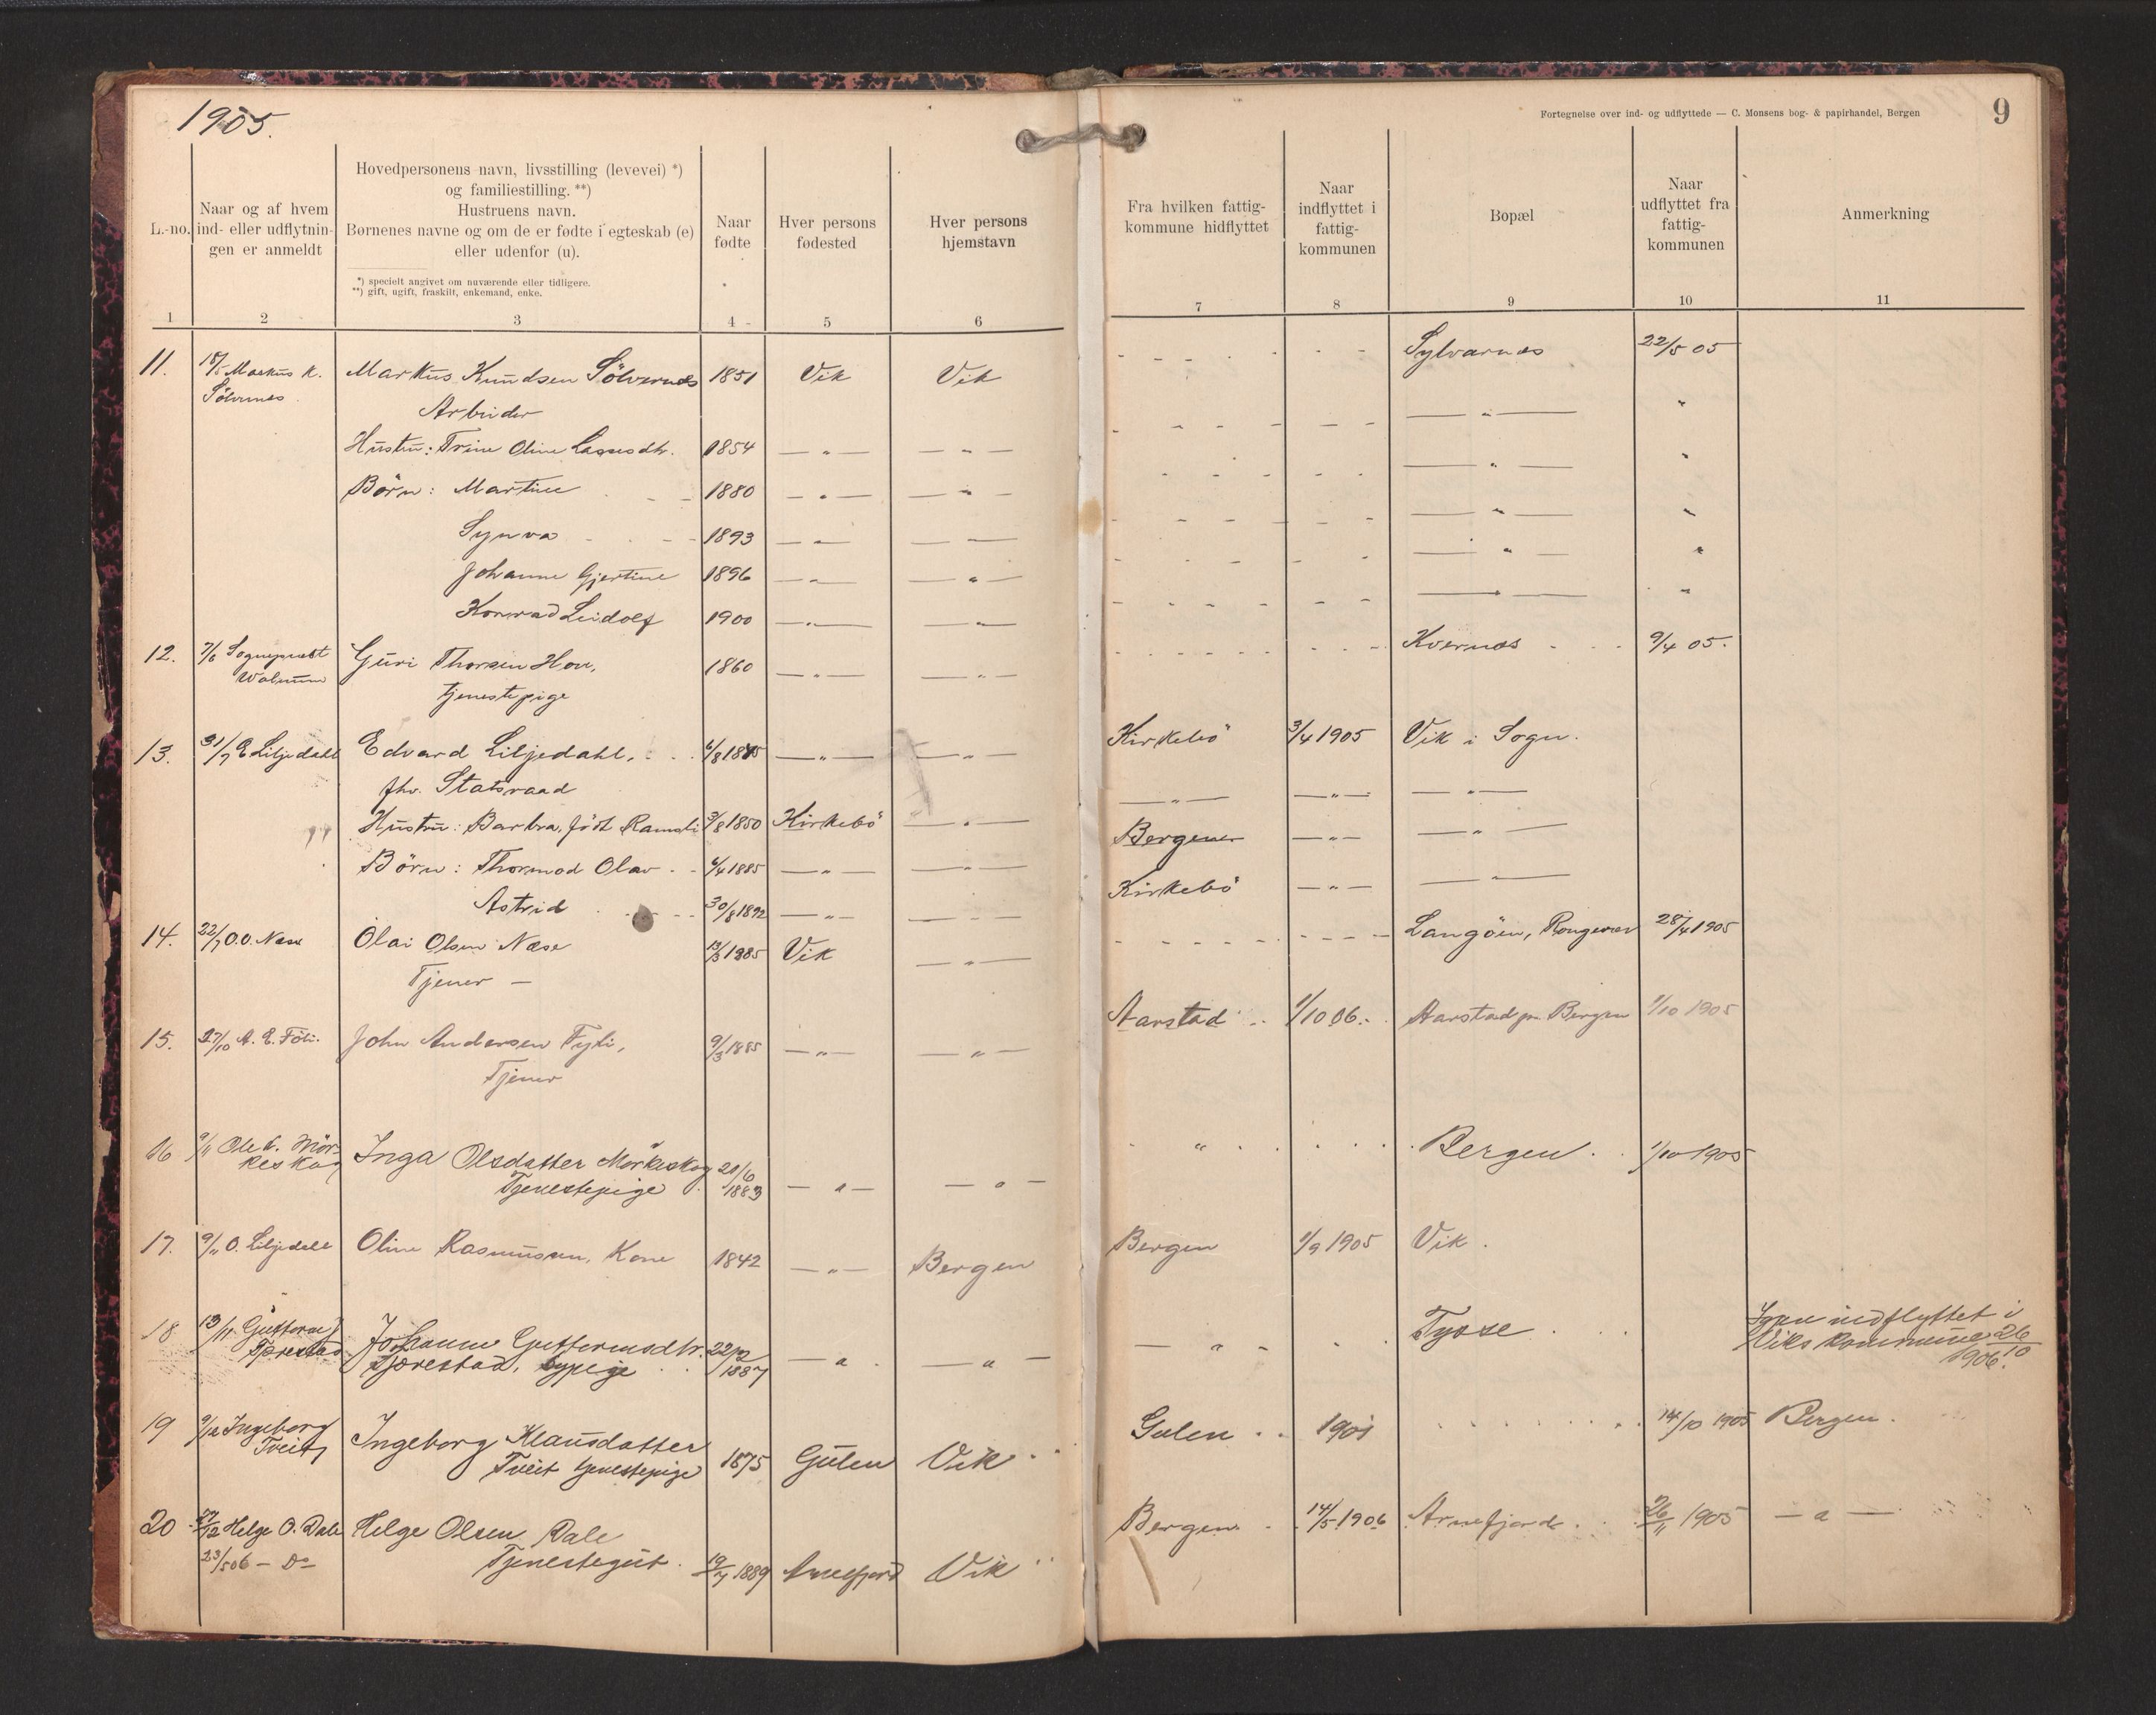 1905.
Fortegnelse over ind- og udflyttede — C. Monsens bog- & papirhandel, Bergen
9
L.-no.
Naar og af hvem
ind- eller udflytnin-
gen er anmeldt
Hovedpersonens navn, livsstilling (levevei) *)
og familiestilling. **)
Hustruens navn.
Børnenes navne og om de er fødte i egteskab (e)
eller udenfor (u).
*) specielt angivet om nuværende eller tidligere.
**) gift, ugift, fraskilt, enkemand, enke.
Naar
fødte
Hver persons
fødested
Hver persons
hjemstavn
Fra hvilken fattig-
kommune hidflyttet
Naar
indflyttet i
fattig-
kommunen
Bopæl
Naar
udflyttet fra
fattig-
kommunen
Anmerkning
1 2 3 4 5 6 7 8 9 10 11
11. Markus K. Markus Knudsen Sölvernes 1851 Vik Vik Sylvarnes 22/5 05
Sölvernes Arbeider — " — "
Hustru: Trine Oline 1854 — " — — " — — " — "
Börn: Martine 1880 — " — — " — — " — "
Synva 1893 — " — — " — — " — "
Johanne Gjertine 1896 — " — — " — — " — "
Konrad Leidolf 1900 — " — — " —
12. 7/6 Sogneprest Guri Thorsen Hove, 1860 — " — — " — Kvernes 9/4 05.
tjenestepige
13. 31/7 E Liljedahl Edvard Liljedahl, — " — — " — Kirkebö 3/4 1905 Vik i Sogn.
fhv. Statsraad — " — — " — — " —
Hustru: Barbra, född 3/8 1850 Kirkebö — " — Bergen — " — — " —
Börn: Thormod Olav 6/4 1885 — " — — " — Kirkebö — " — — " —
Astrid 30/8 1892 — " — — " —
14. 22/7 O.O. Nese Olai Olsen Nese 13/3 1885 Vik — " — Langöen, 28/4 1905
Tjener —
15. 27/10 A. E. Föli. John Andersen Fyli, 9/3 1885 — " — — " — Aarstad 1/10 06. Aarstad pr. Bergen 1/10 1905
Tjener
16 9/11 Ole Mör- Inga Olsdatter Mörkeskog 21/6 " Bergen 1/10 1905
keskog Tjenestepige 1883 — " — — " —
17. 9/11 O. Liljedahl Oline Rasmussen, Kone 1842 — " — Bergen Bergen 1/9 1905 Vik.
18 13/11 Guttorm Johanne Guttormsdtr. — " — — " — — " — Tysse Igjen indflyttet i
Tjærestad Tjærestad, sypige 1887 Viks kommune 26/10
1906.
19 9/12 Ingeborg Ingeborg Klausdatter Gulen 1901 14/10 1905 Bergen.
Tveit Tveit tjenestepige 1875 Gulen Vik
20 27/12 Helge O. Dale Helge Olsen Dale Bergen 14/5 1906 Arnefjord 26/11 1905 — " —
23/5 06 — Do Tjenestegut. 19/7 1889 Arnefjord Vik